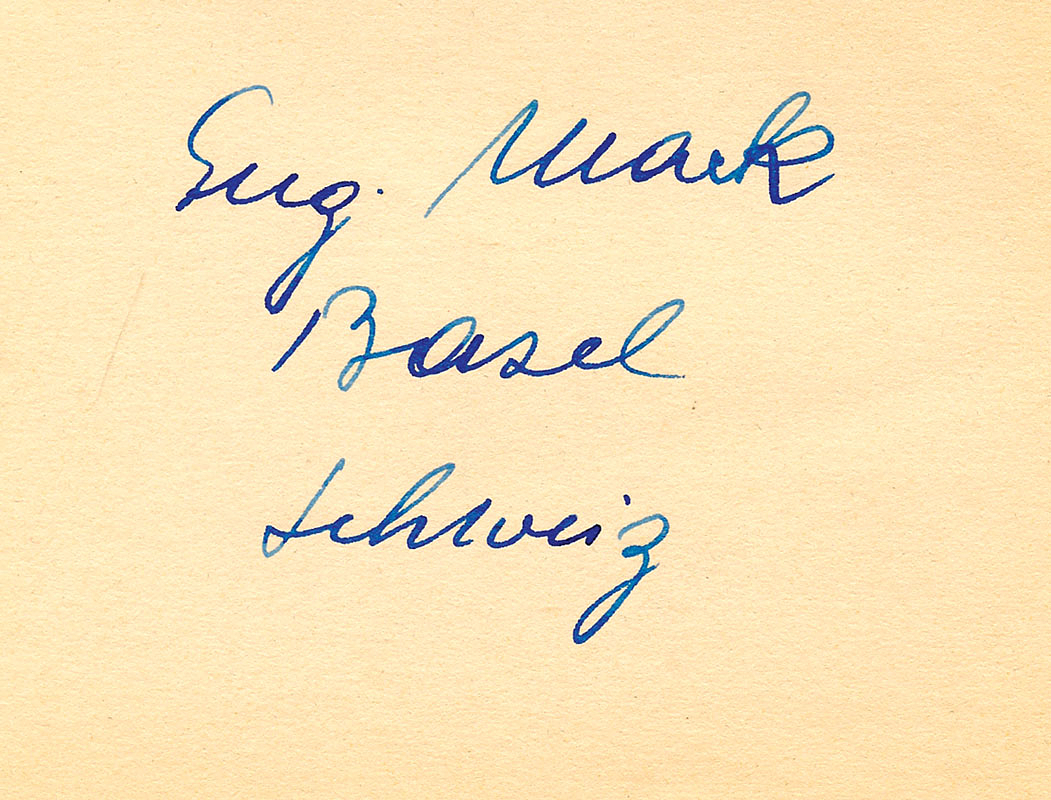 Eug. Mark
Basel
Schweiz